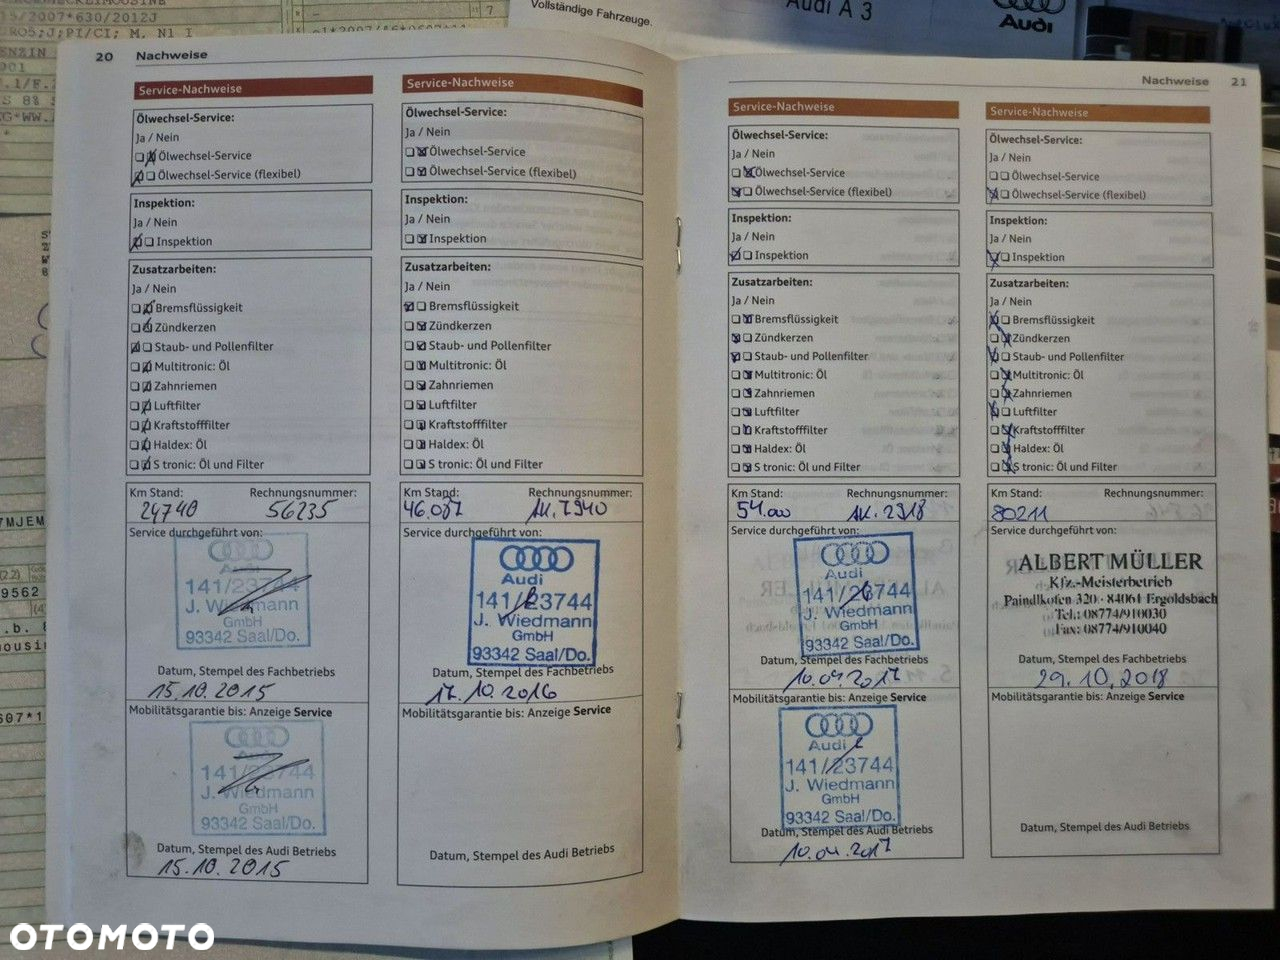 5/2007*630/2012J
Vollständige Fahrzeuge.
Audi A 3
Audi
20 Nachweise
Service-Nachweise
Ölwechsel-Service:
Ja / Nein
Ölwechsel-Service
Ölwechsel-Service (flexibel)
Inspektion:
Ja / Nein
Inspektion
Zusatzarbeiten:
Ja / Nein
Bremsflüssigkeit
Zündkerzen
Staub- und Pollenfilter
Multitronic: Öl
Zahnriemen
Luftfilter
Kraftstofffilter
Haldex: Öl
S tronic: Öl und Filter
Km Stand: Rechnungsnummer:
24740 56235
Service durchgeführt von:
Audi
141/23744
J. Wiedmann
GmbH
93342 Saal/Do.
Datum, Stempel des Fachbetriebs
15.10.2015
Mobilitätsgarantie bis: Anzeige Service
Audi
141/23744
J. Wiedmann
GmbH
93342 Saal/Do.
Datum, Stempel des Audi Betriebs
15.10.2015
Service-Nachweise
Ölwechsel-Service:
Ja / Nein
Ölwechsel-Service
Ölwechsel-Service (flexibel)
Inspektion:
Ja / Nein
Inspektion
Zusatzarbeiten:
Ja / Nein
Bremsflüssigkeit
Zündkerzen
Staub- und Pollenfilter
Multitronic: Öl
Zahnriemen
Luftfilter
Kraftstofffilter
Haldex: Öl
S tronic: Öl und Filter
Km Stand: Rechnungsnummer:
46.087 7940
Service durchgeführt von:
Audi
141/23744
J. Wiedmann
GmbH
93342 Saal/Do.
Datum, Stempel des Fachbetriebs
17.10.2016
Mobilitätsgarantie bis: Anzeige Service
Datum, Stempel des Audi Betriebs
Nachweise 21
Service-Nachweise
Ölwechsel-Service:
Ja / Nein
Ölwechsel-Service
Ölwechsel-Service (flexibel)
Inspektion:
Ja / Nein
Inspektion
Zusatzarbeiten:
Ja / Nein
Bremsflüssigkeit
Zündkerzen
Staub- und Pollenfilter
Multitronic: Öl
Zahnriemen
Luftfilter
Kraftstofffilter
Haldex: Öl
S tronic: Öl und Filter
Km Stand: Rechnungsnummer:
54.000 2318
Service durchgeführt von:
Audi
141/23744
J. Wiedmann
GmbH
93342 Saal/Do.
Datum, Stempel des Fachbetriebs
10.04.2017
Mobilitätsgarantie bis: Anzeige Service
Audi
141/23744
J. Wiedmann
GmbH
93342 Saal/Do.
Datum, Stempel des Audi Betriebs
10.04.2017
Service-Nachweise
Ölwechsel-Service:
Ja / Nein
Ölwechsel-Service
Ölwechsel-Service (flexibel)
Inspektion:
Ja / Nein
Inspektion
Zusatzarbeiten:
Ja / Nein
Bremsflüssigkeit
Zündkerzen
Staub- und Pollenfilter
Multitronic: Öl
Zahnriemen
Luftfilter
Kraftstofffilter
Haldex: Öl
S tronic: Öl und Filter
Km Stand: Rechnungsnummer:
80211
Service durchgeführt von:
ALBERT MÜLLER
Kfz.-Meisterbetrieb
Paindlkofen 320 · 84061 Ergoldsbach
Tel.: 08774/910030
Fax: 08774/910040
Datum, Stempel des Fachbetriebs
29.10.2018
Mobilitätsgarantie bis: Anzeige Service
Datum, Stempel des Audi Betriebs
OTOMOTO